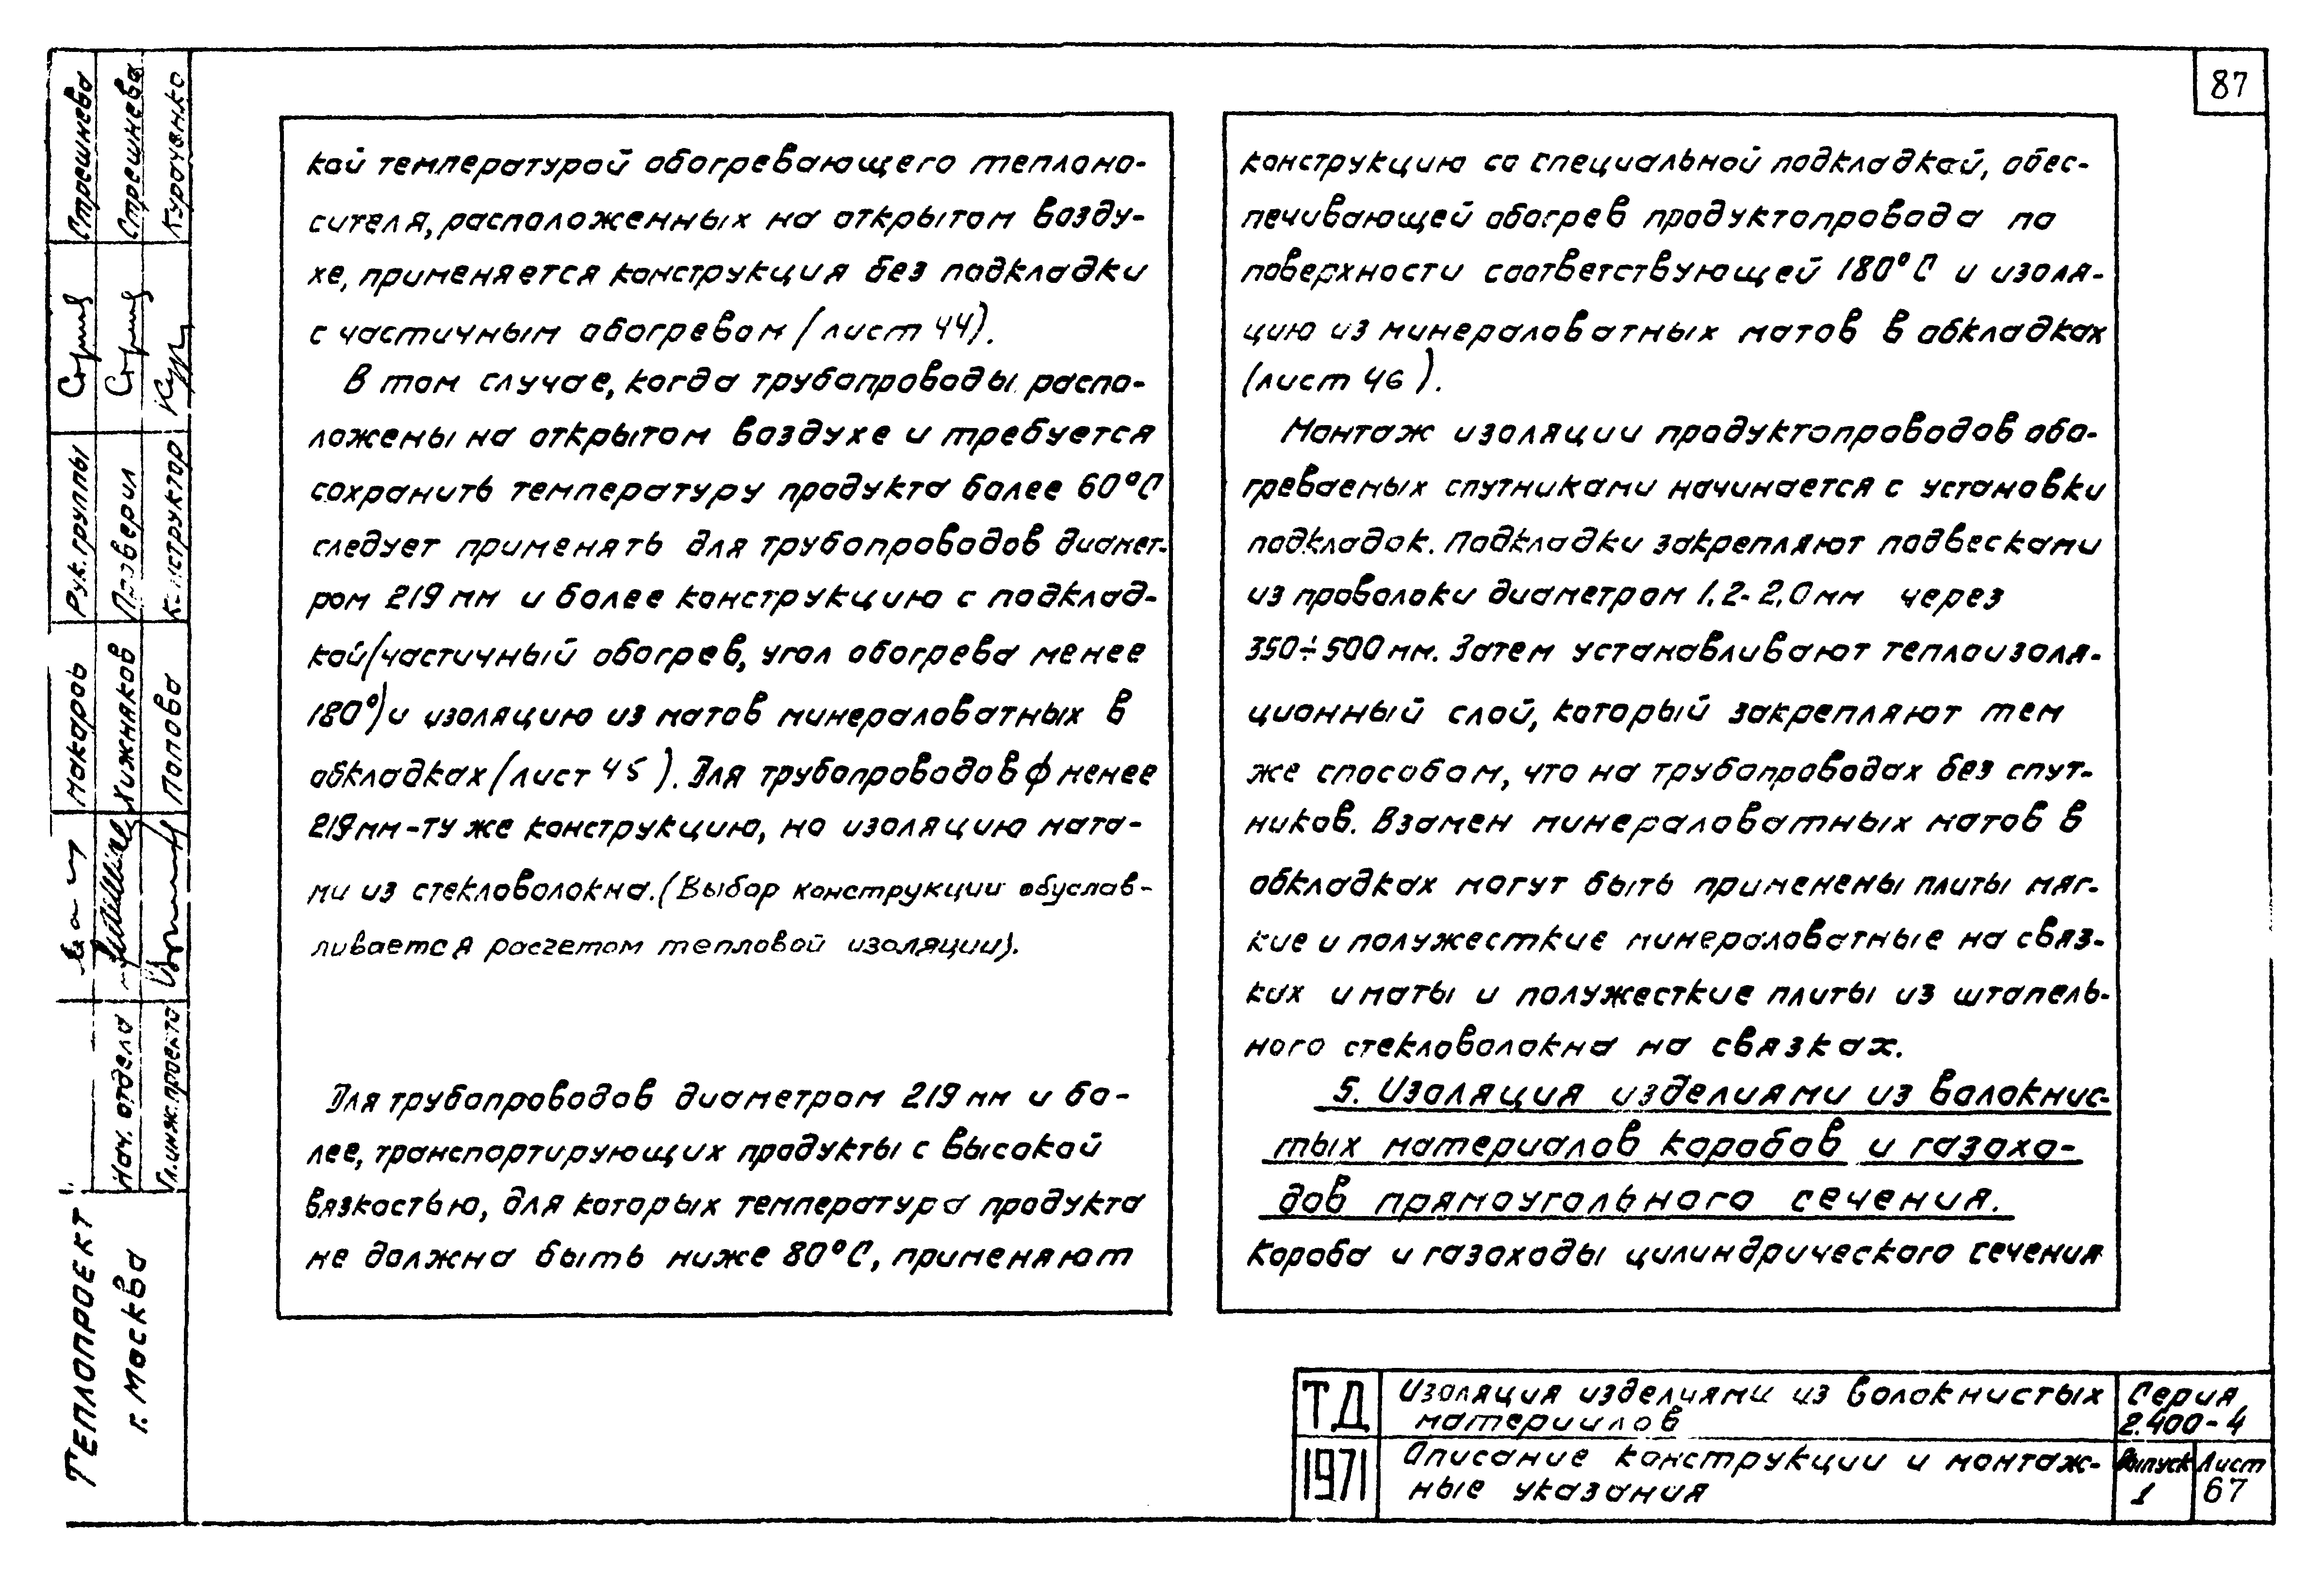 87
кой температурой обогревающего теплоно-
сителя, расположенных на открытом возду-
хе, применяется конструкция без подкладки
с частичным обогревом (лист 44).
В том случае, когда трубопроводы распо-
ложены на открытом воздухе и требуется
сохранить температуру продукта более 60°С
следует применять для трубопроводов диамет-
ром 219 мм и более конструкцию с подклад-
кой (частичный обогрев, угол обогрева менее
180°) и изоляцию из матов минераловатных в
обкладках (лист 45). Для трубопроводов ф менее
219 мм - ту же конструкцию, но изоляцию мата-
ми из стекловолокна. (Выбор конструкции обуслав-
ливается расчетом тепловой изоляции).
Для трубопроводов диаметром 219 мм и бо-
лее, транспортирующих продукты с высокой
вязкостью, для которых температура продукта
не должна быть ниже 80°С, применяют
конструкцию со специальной подкладкой, обес-
печивающей обогрев продуктопровода по
поверхности соответствующей 180°С и изоля-
цию из минераловатных матов в обкладках
(лист 46).
Монтаж изоляции продуктопроводов обо-
греваемых спутниками начинается с установки
подкладок. Подкладки закрепляют подвесками
из проволоки диаметром 1,2-2,0 мм через
350÷500 мм. Затем устанавливают теплоизоля-
ционный слой, который закрепляют тем
же способом, что на трубопроводах без спут-
ников. Взамен минераловатных матов в
обкладках могут быть применены плиты мяг-
кие и полужесткие минераловатные на связ-
ках и маты и полужесткие плиты из штапель-
ного стекловолокна на связках.
5. Изоляция изделиями из волокнис-
тых материалов коробов и газохо-
дов прямоугольного сечения.
Короба и газоходы цилиндрического сечения
ТД
1971
Изоляция изделиями из волокнистых
материалов
Описание конструкции и монтаж-
ные указания
Серия
2.400-4
Выпуск
1
Лист
67
Теплопроект
г. Москва
Нач. отдела
Гл. инж. проекта
Макаров
Хижняков
Попова
Рук. группы
Проверил
Конструктор
Стрешнева
Стрешнева
Куроченко